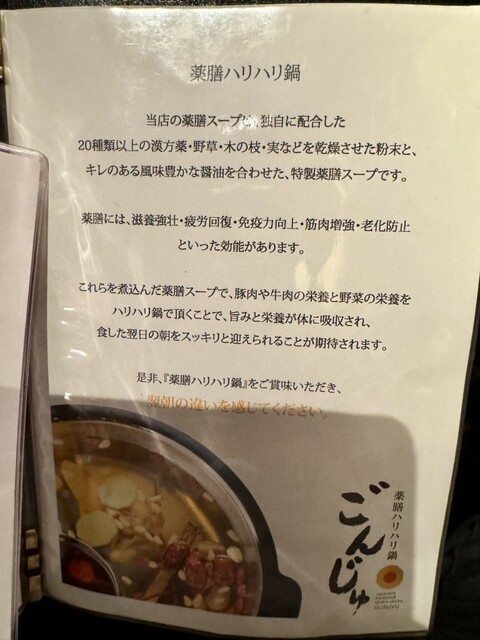 薬膳ハリハリ鍋
当店の薬膳スープは、独自に配合した
20種類以上の漢方薬・野草・木の枝・実などを乾燥させた粉末と、
キレのある風味豊かな醤油を合わせた、特製薬膳スープです。
薬膳には、滋養強壮・疲労回復・免疫力向上・筋肉増強・老化防止
といった効能があります。
これらを煮込んだ薬膳スープで、豚肉や牛肉の栄養と野菜の栄養を
ハリハリ鍋で頂くことで、旨みと栄養が体に吸収され、
食した翌日の朝をスッキリと迎えられることが期待されます。
是非、『薬膳ハリハリ鍋』をご賞味いただき、
翌朝の違いを感じてください。
薬膳ハリハリ鍋
ごんじゅ